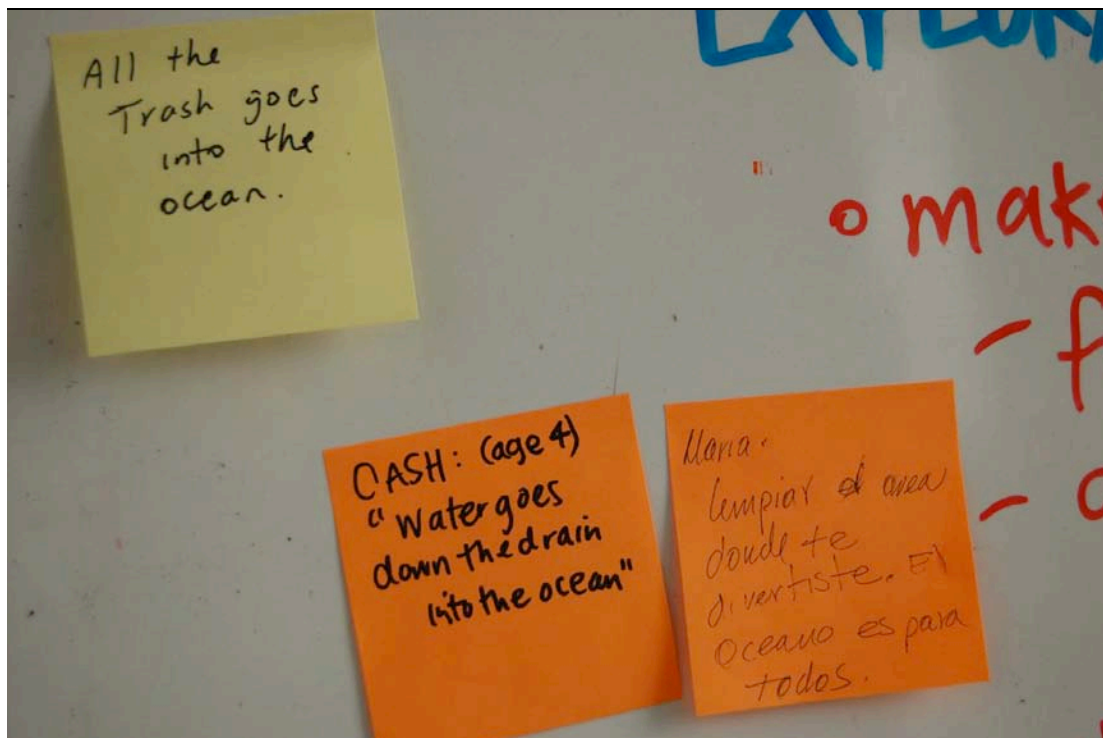 All the
Trash goes
into the
ocean.
CASH: (age 4)
"Water goes
down the drain
into the ocean"
Maria.
limpiar el area
donde te
divertiste. El
Oceano es para
todos.